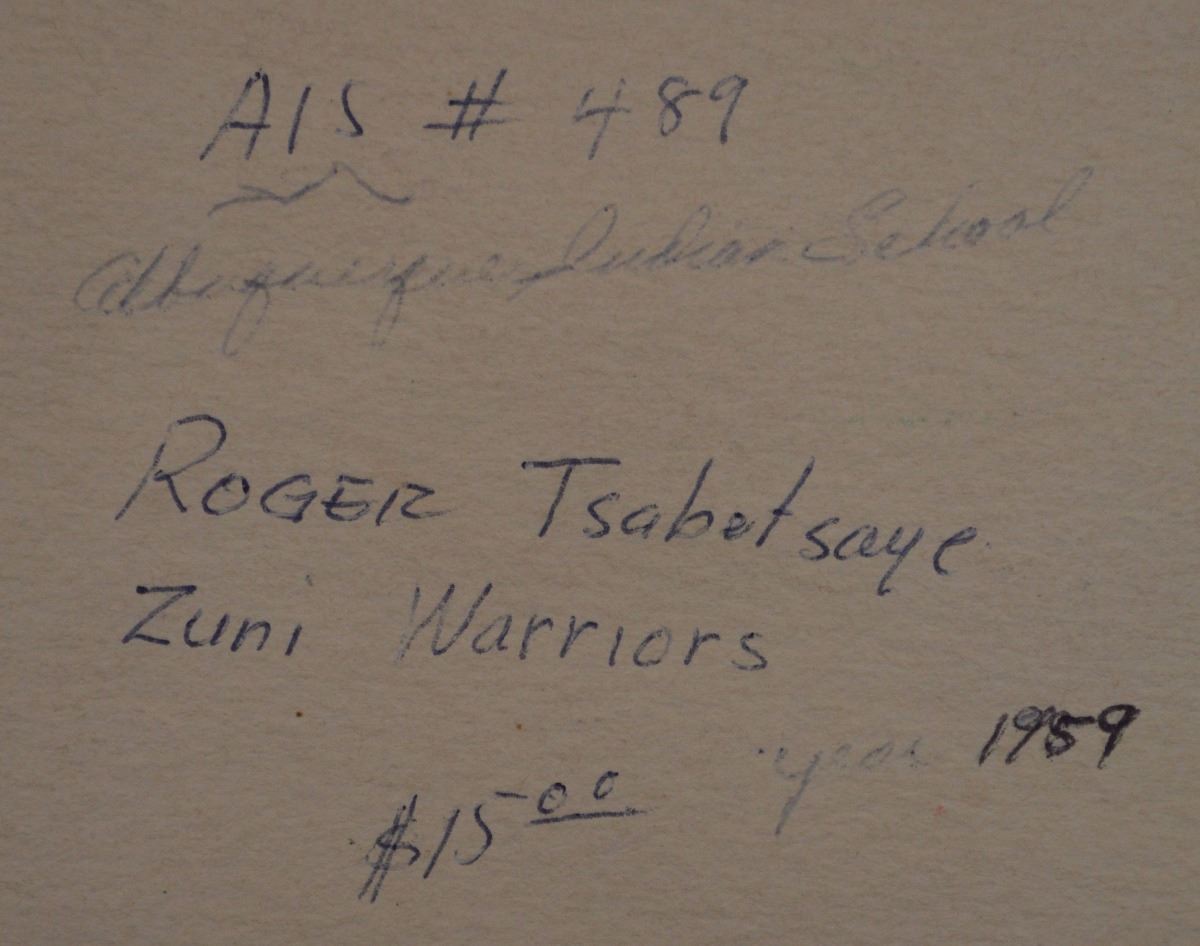 AIS # 489
Albuquerque Indian School
ROGER Tsabetsaye
Zuni Warriors
year 1959
$15.00